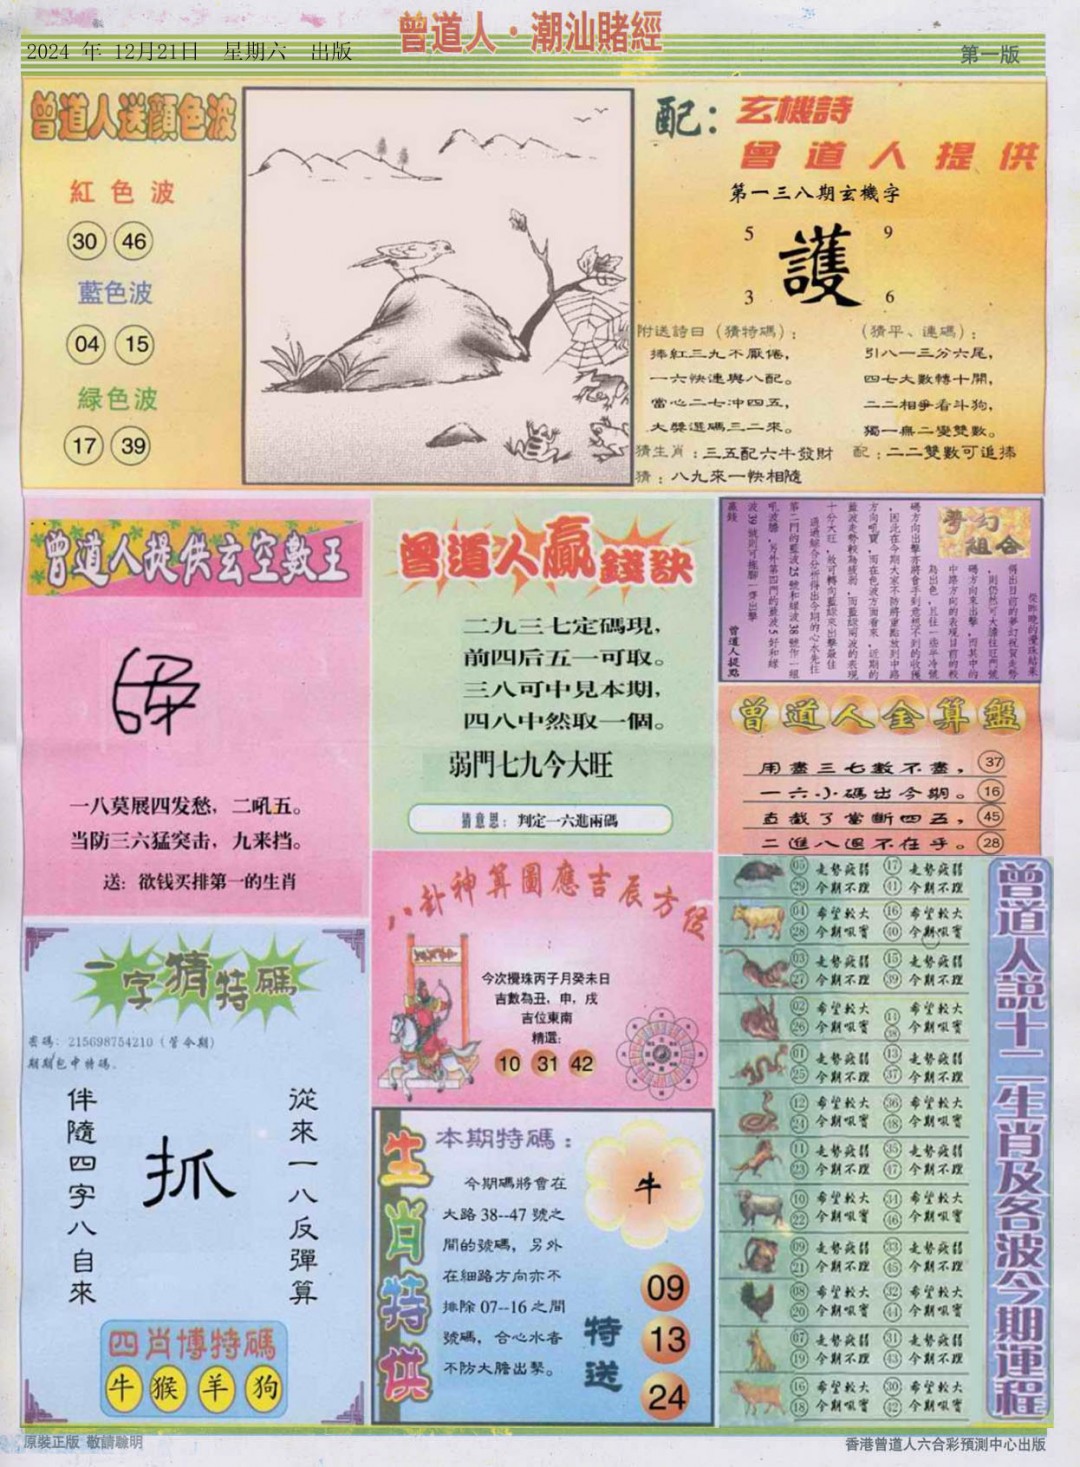 曾道人·潮汕賭經
2024 年 12月21日 星期六 出版
第一版
曾道人送顏色波
紅色波
30 46
藍色波
04 15
緑色波
17 39
配：玄機詩
曾道人提供
第一三八期玄機字
5 9
護
3 6
附送詩曰（猜特碼）：
捧紅三九不厭倦，
一六快連與八配。
當心二七冲四五，
大獎選碼三二來。
猜生肖：三五配六牛發財
猜：八九來一快相隨
（猜平、連碼）：
引八一三分六尾，
四七大數轉十開，
二二相爭看斗狗，
獨一無二變雙數。
配：二二雙數可追捧
曾道人提供玄空數王
一八莫展四发愁，二吼五。
当防三六猛突击，九来挡。
送：欲钱买排第一的生肖
曾道人贏錢訣
二九三七定碼現，
前四后五一可取。
三八可中見本期，
四八中然取一個。
弱門七九今大旺
猜意思：判定一六進兩碼
夢幻
組合
曾道人提點
曾道人金算盤
用盡三七數不盡，37
一六小碼出今期。16
直截了當斷四五，45
二進八退不在乎。28
一字猜特碼
密碼：215698754210（管今期）
期期包中特碼。
從來一八反彈算
抓
伴隨四字八自來
四肖博特碼
牛 猴 羊 狗
八卦神算圖應吉辰方位
今次攪珠丙子月癸未日
吉數為丑，申，戌
吉位東南
精選：
10 31 42
生肖特供
本期特碼：
今期碼將會在
大路 38--47 號之
間的號碼，另外
在細路方向亦不
排除 07--16 之間
號碼，合心水者
不防大膽出擊。
牛
特送
09
13
24
曾道人説十二生肖及各波今期運程
05 走勢疲弱 17 走勢疲弱
29 今期不理 41 今期不理
04 希望較大 16 希望較大
28 今期吼實 40 今期吼實
03 走勢疲弱 15 走勢疲弱
27 今期不理 39 今期不理
02 希望較大 14 希望較大
26 今期吼實 38 今期吼實
01 走勢疲弱 13 走勢疲弱
25 今期不理 37 今期不理
12 希望較大 36 希望較大
24 今期吼實 48 今期吼實
11 走勢疲弱 35 走勢疲弱
23 今期不理 47 今期不理
10 希望較大 34 希望較大
22 今期吼實 46 今期吼實
09 走勢疲弱 33 走勢疲弱
21 今期不理 45 今期不理
08 希望較大 32 希望較大
20 今期吼實 44 今期吼實
07 走勢疲弱 31 走勢疲弱
19 今期不理 43 今期不理
希望較大 30 希望較大
18 今期吼實 42 今期吼實
原裝正版 敬請聰明
香港曾道人六合彩預測中心出版